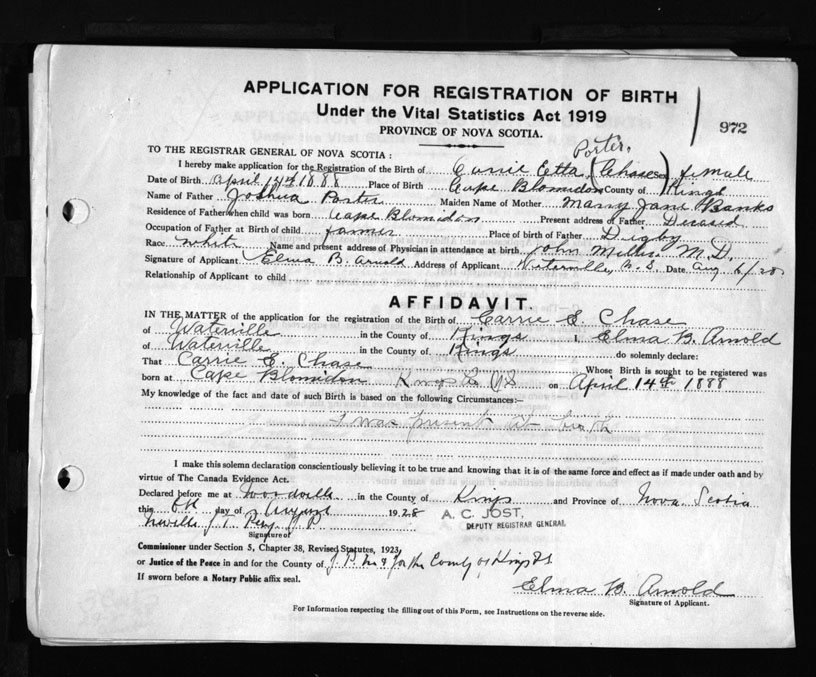 APPLICATION FOR REGISTRATION OF BIRTH
Under the Vital Statistics Act 1919
PROVINCE OF NOVA SCOTIA.
972
Porter.
TO THE REGISTRAR GENERAL OF NOVA SCOTIA :
I hereby make application for the Registration of the Birth of Carrie Etta (Chase) female
Date of Birth April 14th 1888 Place of Birth Cape Blomidon County of Kings
Name of Father Joshua Porter Maiden Name of Mother Mary Jane Banks
Residence of Father when child was born Cape Blomidon Present address of Father Deceased
Occupation of Father at Birth of child farmer Place of birth of Father Digby
Race white Name and present address of Physician in attendance at birth John Miller M.D.
Signature of Applicant Elma B. Arnold Address of Applicant Waterville, N.S. Date Aug 6/28
Relationship of Applicant to child
AFFIDAVIT.
IN THE MATTER of the application for the registration of the Birth of Carrie E Chase
of Waterville in the County of Kings I, Elma B. Arnold
of Waterville in the County of Kings do solemnly declare:
That Carrie E. Chase Whose Birth is sought to be registered was
born at Cape Blomidon Kings Co NS on April 14th 1888
My knowledge of the fact and date of such Birth is based on the following Circumstances:—
I was present at birth
I make this solemn declaration conscientiously believing it to be true and knowing that it is of the same force and effect as if made under oath and by
virtue of The Canada Evidence Act.
Declared before me at Woodville in the County of Kings and Province of Nova Scotia
this 6th day of August 1928 A. C. JOST,
Neville J. P. DEPUTY REGISTRAR GENERAL
Signature of
Commissioner under Section 5, Chapter 38, Revised Statutes, 1923,
or Justice of the Peace in and for the County of J. P. in & for the County of Kings
If sworn before a Notary Public affix seal.
Elma B. Arnold
Signature of Applicant.
For Information respecting the filling out of this Form, see Instructions on the reverse side.